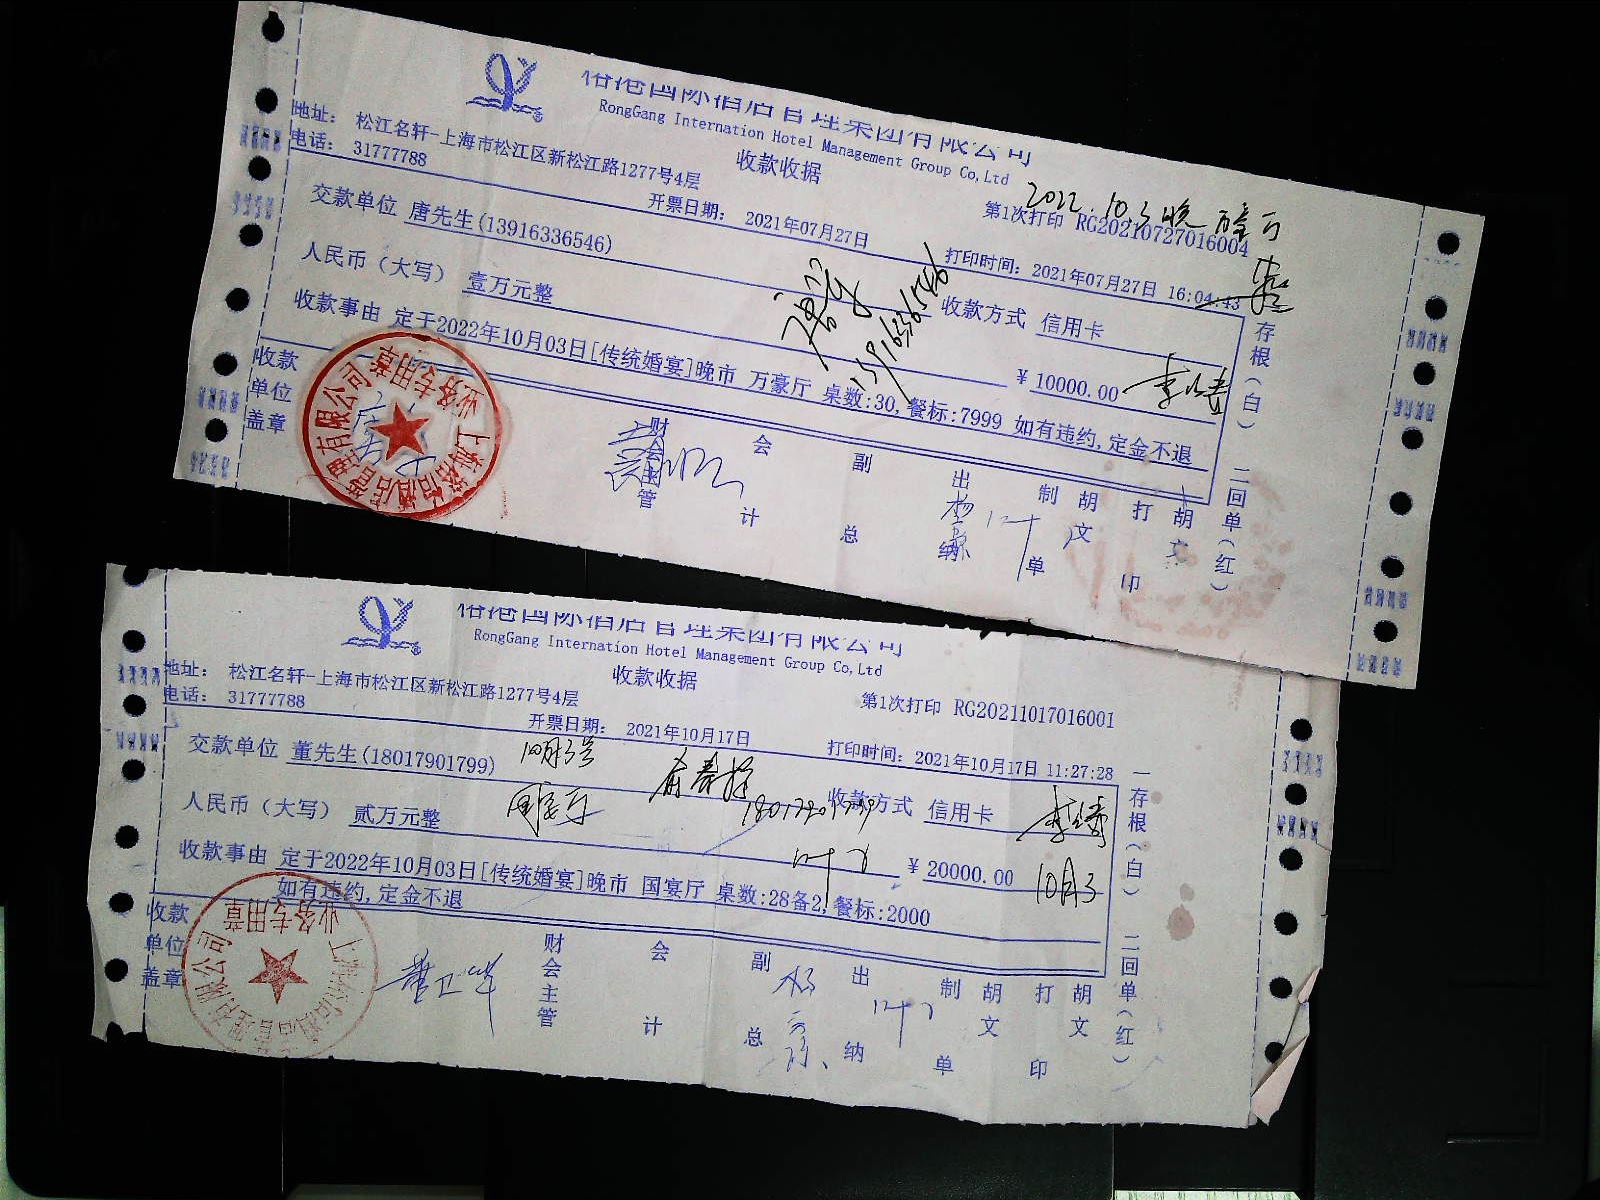 俗港国际酒店管理集团有限公司
RongGang Internation Hotel Management Group Co,Ltd
地址: 松江名轩-上海市松江区新松江路1277号4层
电话: 31777788
收款收据
2022.10.3晚
第1次打印 RG20210727016004
开票日期: 2021年07月27日
打印时间: 2021年07月27日 16:04:43
交款单位 唐先生(13916336546)
13916336546
人民币（大写） 壹万元整
收款方式 信用卡
收款事由 定于2022年10月03日[传统婚宴]晚市 万豪厅 桌数:30,餐标:7999 如有违约,定金不退
¥ 10000.00
收款单位盖章
财会主管
会计
副总
出纳
制单 胡文
打印 胡文
存根（白） 二回单（红）
业务专用章
俗港国际酒店管理集团有限公司
RongGang Internation Hotel Management Group Co,Ltd
地址: 松江名轩-上海市松江区新松江路1277号4层
电话: 31777788
收款收据
第1次打印 RG20211017016001
开票日期: 2021年10月17日
打印时间: 2021年10月17日 11:27:28
交款单位 董先生(18017901799)
10月3号
18017901799
人民币（大写） 贰万元整
国宴厅
收款方式 信用卡
收款事由 定于2022年10月03日[传统婚宴]晚市 国宴厅 桌数:28备2,餐标:2000
如有违约,定金不退
¥ 20000.00
10月3
收款单位盖章
董卫华
财会主管
会计
副总
出纳
制单 胡文
打印 胡文
一存根（白） 二回单（红）
业务专用章